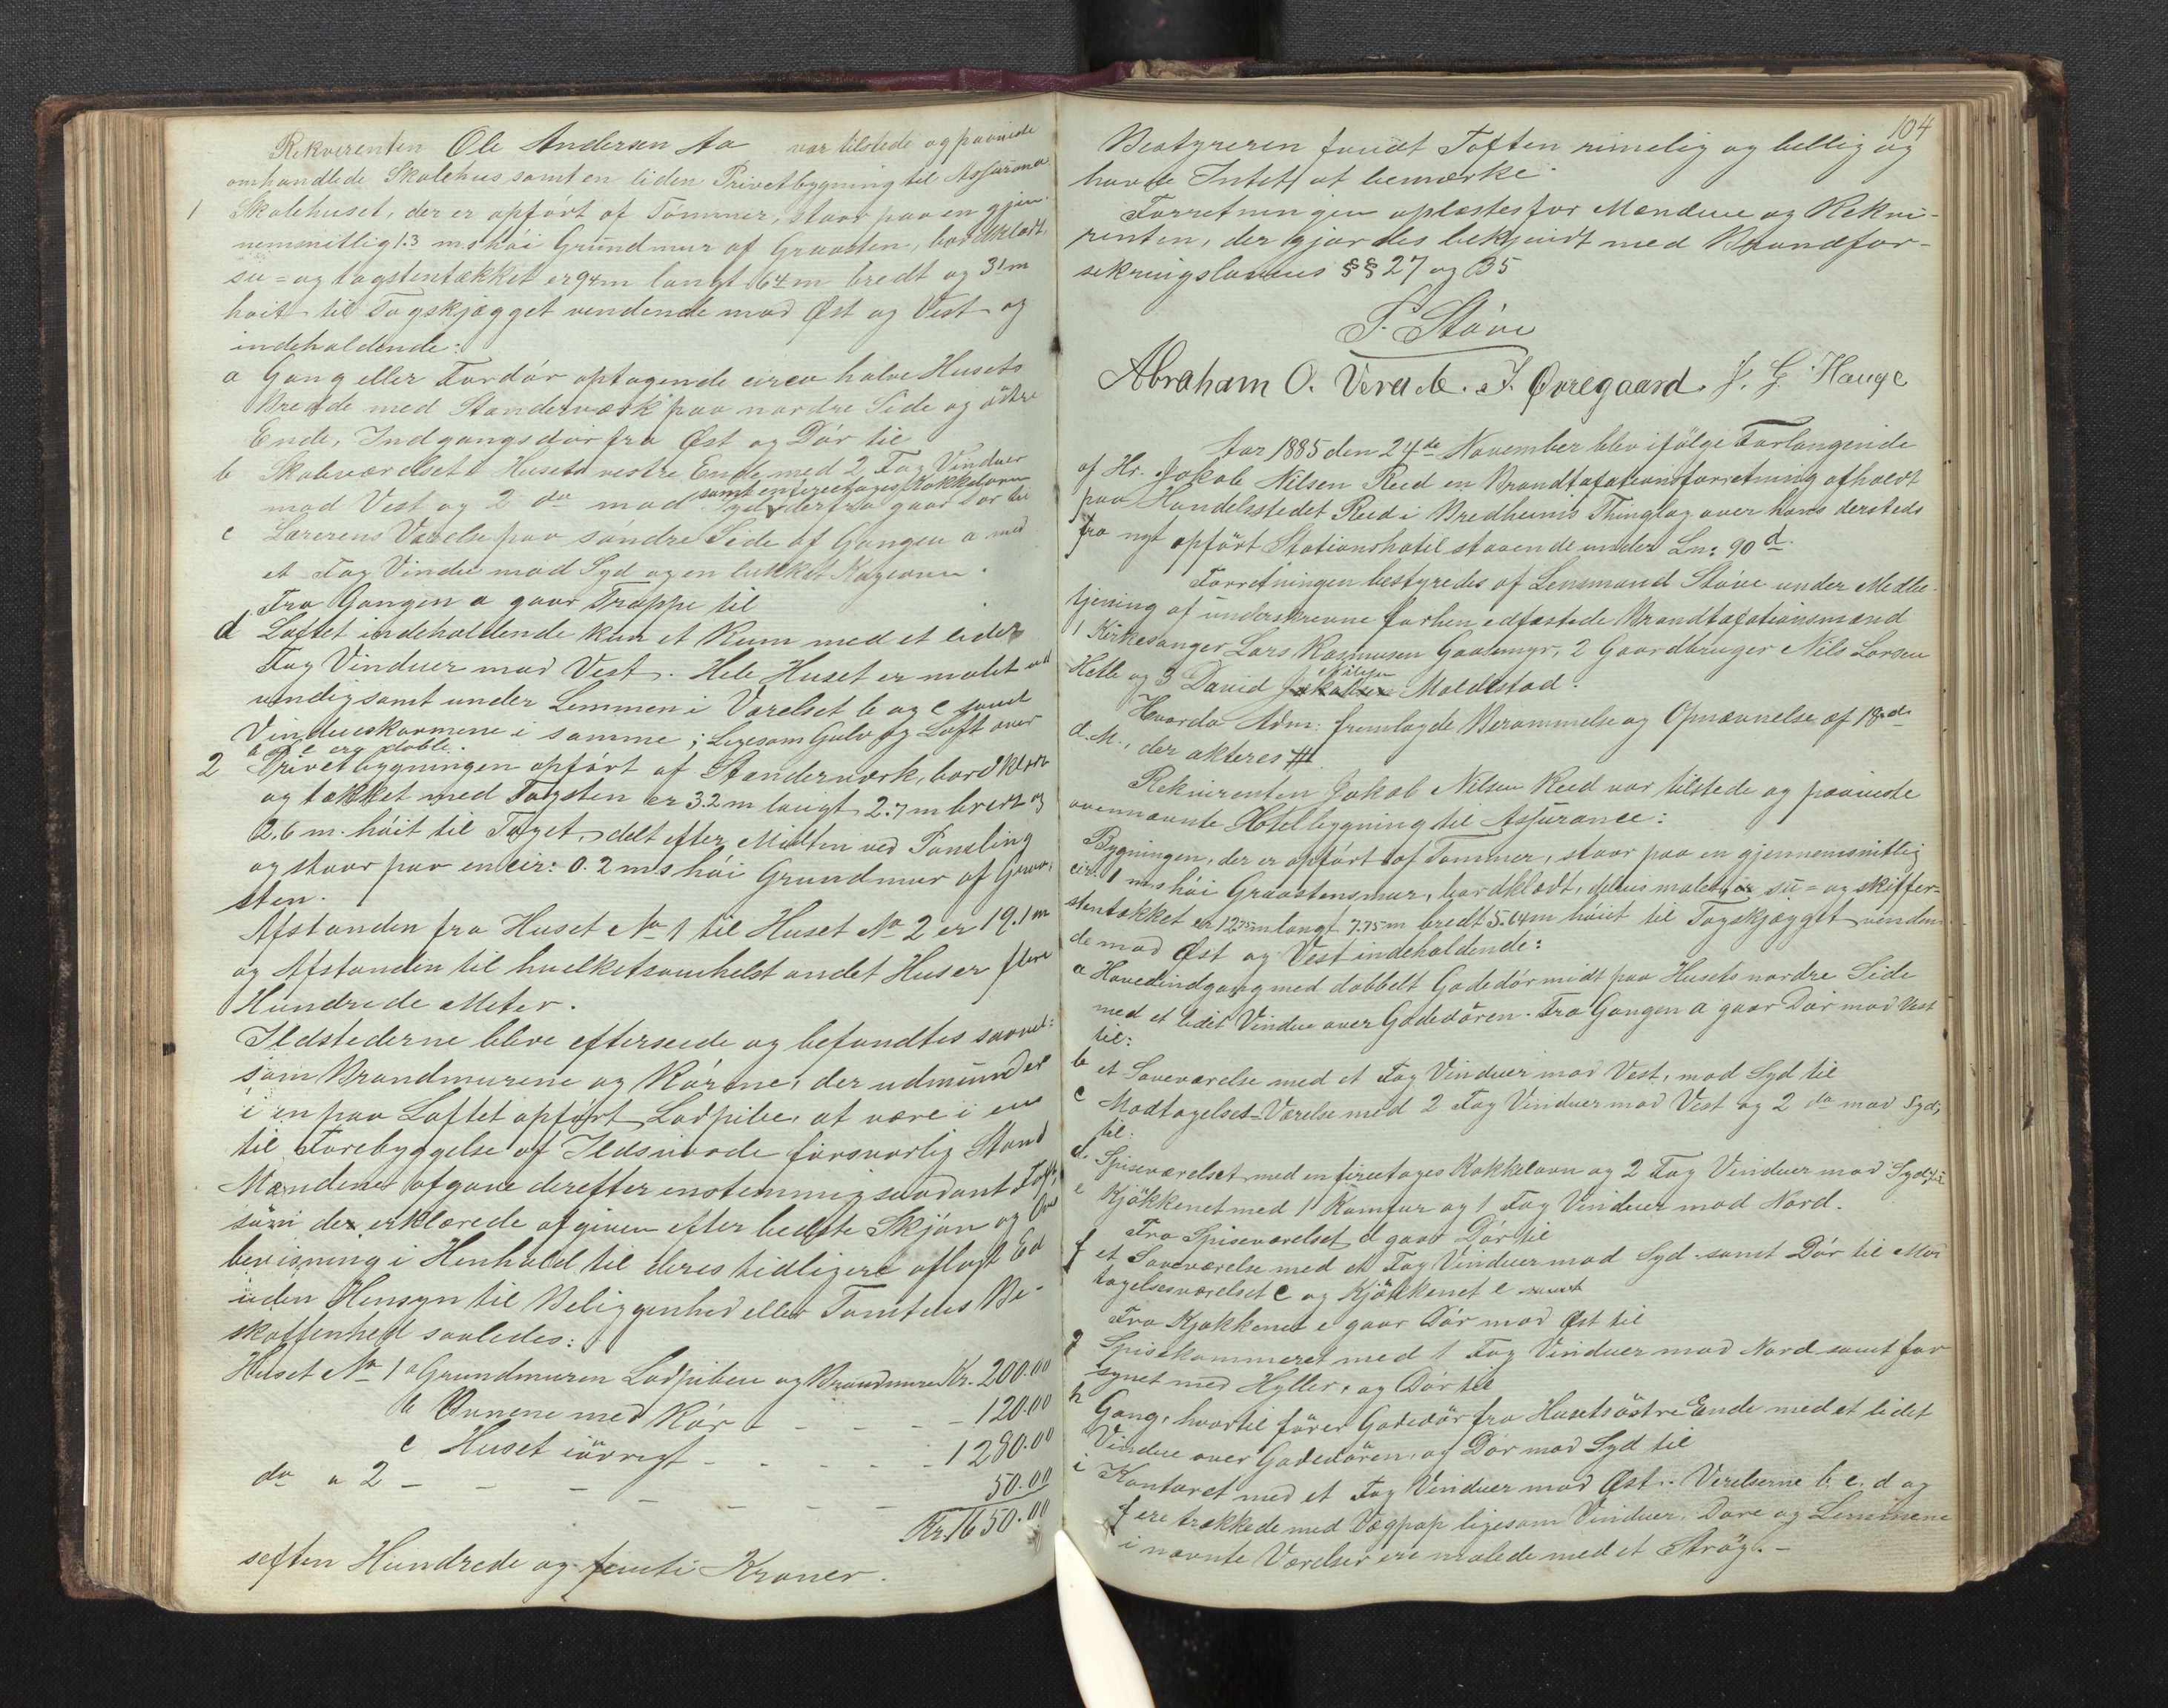 Rekvirenten Ole Andersen Aa var tilstede og paaviste
omhandlede Skolehus samt en liden Privetbygning til Assurance
1 Skolehuset, der er opført af Tømmer, staar paa en gjen-
nemsnitlig 1.3 m.s høi Grundmur af Graasten, bordklædt,
su= og tagstentækket er 9.4m langt 6.4m bredt og 3.1m
høit til Tagskjægget vendende mod Øst og Vest og
indeholdende:
a Gang eller Fordør optagende circa halve Husets
Bredde med Standerværk paa nordre Side og østre
Ende, Indgangsdør fra Øst og Dør til
b Skoleværelset i Husets vestre Ende med 2 Fag Vinduer
samt en fireetages Kakkelovn
mod Vest og 2 do mod Syd, derfra gaar Dør til
c Lærerens Værelse paa søndre Side af Gangen a med
et Fag Vindu mod Syd og en lukket Kogeovn.
Fra Gangen a gaar Trappe til
d Loftet indeholdende kun et Rum med et lidet
Fag Vinduer mod Vest. Hele Huset er malet ud
vendig samt under Lemmen i Værelset b og c samt
Vindueskarmene i samme; ligesom Gulv og Loft over
b og c ere doble.
2 Privetbygningen opført af Standerværk, bordklædt
og tækket med Tagsten er 3.2m langt 2.7m bredt og
2.6 m. høit til Taget, delt efter Midten ved Panæling
og staar paa en cir: 0.2 m.s høi Grundmur af Graa-
sten.
Afstanden fra Huset No 1 til Huset No 2 er 19.1m
og Afstanden til hvilketsomhelst andet Hus er flere
Hundrede Meter.
Ildstederne bleve efterseede og befandtes saavel
som Brandmurene og Rørene, der udmunder
i en paa Loftet opført Lodpibe, at være i en
til Forebyggelse af Ildsvaade forsvarlig Stand
Mændene afgave derefter enstemmig saadant Taxt,
som de erklærede afgiven efter bedste Skjøn og Over
bevisning i Henhold til deres tidligere aflagt Ed
uden Hensyn til Beliggenhed eller Tomtens Be-
skaffenhed saaledes:
Huset No 1 a Grundmuren Lodpiben og Brandmuren Kr. 200.00
b Ovnene med Rør - - - - 120.00
c Huset iøvrigt - - - - - 1280.00
do " 2 - - - - - - - 50.00
Kr. 1650.00
sexten Hundrede og femti Kroner.
104
Bestyreren fandt Taxten rimelig og billig og
havde Intet at bemærke.
Forretningen oplæstes for Mændene og Rekvi-
renten, der gjordes bekjendt med Brandfor-
sikringslovens §§ 27 og 35
S. Støve
Abraham O. Verade. J. Øvregaard. J. G. Hauge
Aar 1885 den 24de November blev ifølge Forlangende
af Hr. Jakob Nilsen Reed en Brandtaxationsforretning afholdt
paa Handelsstedet Reed i Bredheims Thinglag over hans dersteds
fra nyt opført Stationshotel staaende under Ln: 90 d.
Forretningen bestyredes af Lensmand Støve under Medbe-
tjening af underskrevne forhen edfæstede Brandtaxationsmænd
1 Kirkesanger Lars Rasmusen Gaasemyr, 2 Gaardbruger Nils Larsen
Nilsen
Hetle og 3 David Moldestad.
Hvorda Adm: fremlagde Berammelse og Opnævnelse af 18de
d. M., der akteres #
Rekvirenten Jakob Nilsen Reed var tilstede og paaviste
ovennævnte Hotelbygning til Assurance:
Bygningen, der er opført af Tømmer, staar paa en gjennemsnitlig
cir: 1 m.s høi Graastensmur, bordklædt, delvis malet, su= og skiffer-
stentækket er 12.75m langt 7.75m bredt 5.64m høiet til Tagskjægget venden-
de mod Øst og Vest indeholdende:
a Hovedindgang med dobbelt Gadedør midt paa Husets nordre Side
med et lidet Vindue over Gadedøren. Fra Gangen a gaar Dør mod Vest
til:
b et Soveværelse med et Fag Vinduer mod Vest, mod Syd til
c Modtagelses-Værelse med 2 Fag Vinduer mod Vest og 2 do mod Syd,
til.
d. Spiseværelset med en fireetages Kakkelovn og 2 Fag Vinduer mod Syd, til
e Kjøkkenet med 1 Komfur og 1 Fag Vinduer mod Nord.
Fra Spiseværelset d gaar Dør til
f et Soveværelse med et Fag Vinduer mod Syd samt Dør til Mod
tagelsesværelset c og Kjøkkenet e samt
Fra Kjøkkenet e gaar Dør mod Øst til
g Spisekammeret med 1 Fag Vinduer mod Nord samt for
synet med Hyller, og Dør til
h Gang, hvortil fører Gadedør fra Husets østre Ende med et lidet
Vindue over Gadedøren, og Dør mod Syd til
i Kontoret med et Fag Vinduer mod Øst. Værelserne b, c, d og
f ere trækkede med Vægpap ligesom Vinduer, Døre og Lemmene
i nævnte Værelser ere malede med et Strøg. -